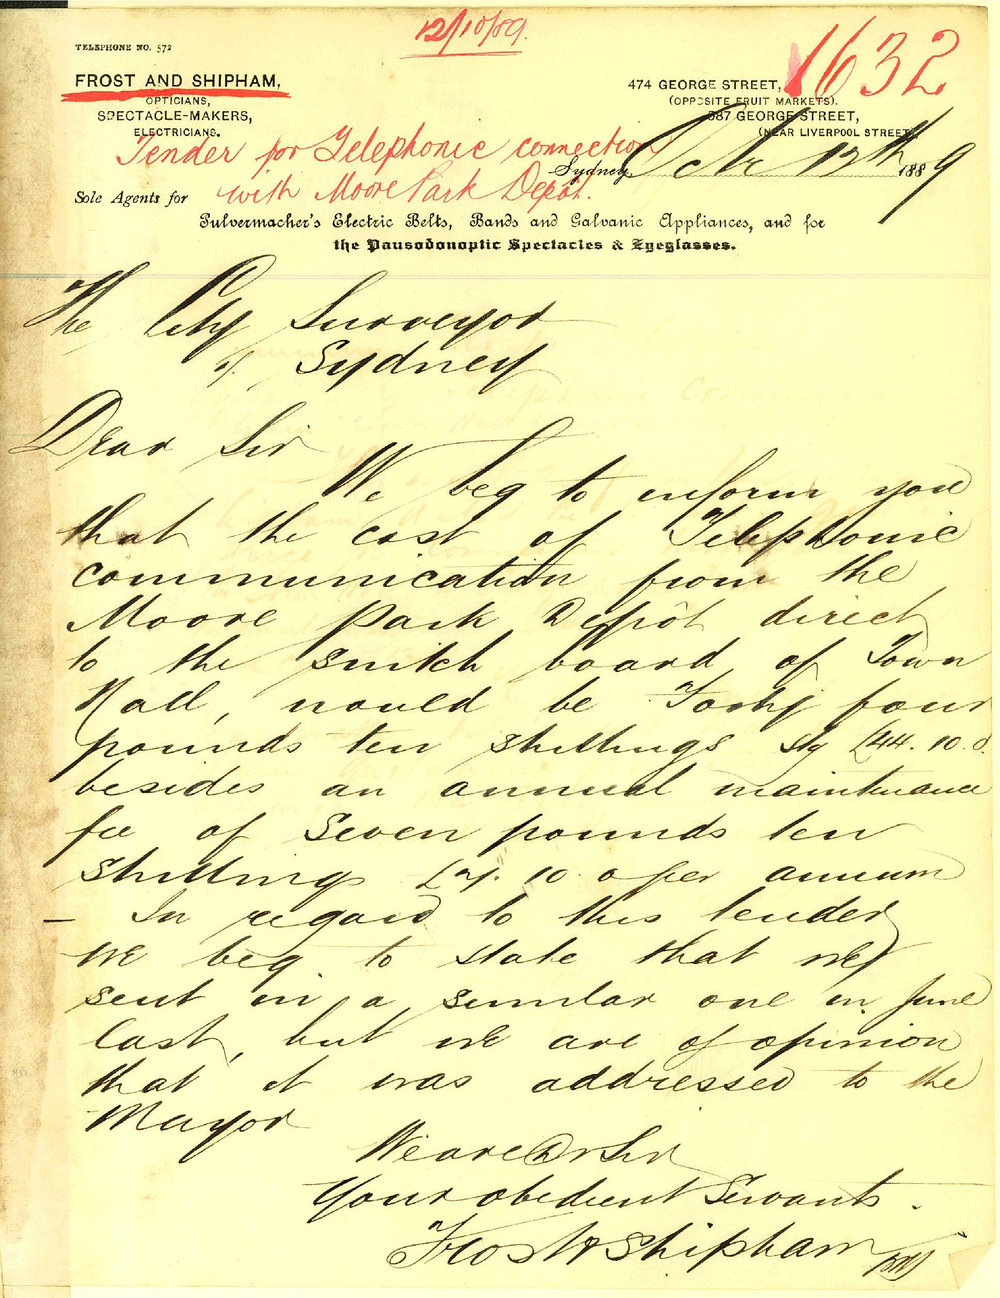 12/10/89.
TELEPHONE NO. 572
1632
FROST AND SHIPHAM,
OPTICIANS,
SPECTACLE-MAKERS,
ELECTRICIANS.
474 GEORGE STREET,
(OPPOSITE FRUIT MARKETS).
587 GEORGE STREET,
(NEAR LIVERPOOL STREET)
Tender for Telephonic connection
with Moore Park Depôt.
Sydney, Octr 12th 1889
Sole Agents for
Pulvermacher's Electric Belts, Bands and Galvanic Appliances, and for
the Pausodonoptic Spectacles & Eyeglasses.
The City Surveyor
of Sydney
Dear Sir
We beg to inform you
that the cost of Telephonic
communication from the
Moore Park Depôt direct
to the switch board of Town
Hall, would be Forty four
pounds ten shillings Stg £44.10.0.
besides an annual maintenance
fee of Seven pounds ten
shillings £7.10.0 per annum
— In regard to this tender
we beg to state that we
sent in a similar one in June
last, but we are of opinion
that it was addressed to the
Mayor
We are Dr Sir
Your obedient Servants.
Frost & Shipham